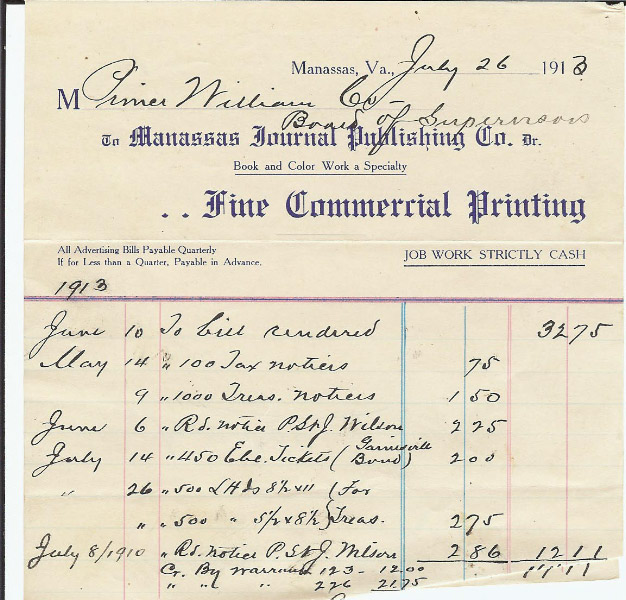 Manassas, Va., July 26 1913
M Prince William Co
Board of Supervisors
To Manassas Journal Publishing Co. Dr.
Book and Color Work a Specialty
. . Fine Commercial Printing
All Advertising Bills Payable Quarterly
If for Less than a Quarter, Payable in Advance.
JOB WORK STRICTLY CASH
1913
June 10 To bill rendered 32 75
May 14 " 100 Tax notices 75
9 " 1000 Treas. notices 1 50
June 6 " Rd. notice P. St. J. Wilson 2 25
July 14 " 450 Elec. Tickets ( Bond) 2 00
" 26 " 500 LHds 8½ x 11 (For
" " 500 " 5½ x 8½ } Treas. 2 75
July 8/1910 " Rd. notice P. St. J. Wilson 2 86 12 11
Cr. By warrant 123 - 12.00
" " " 226 21.75